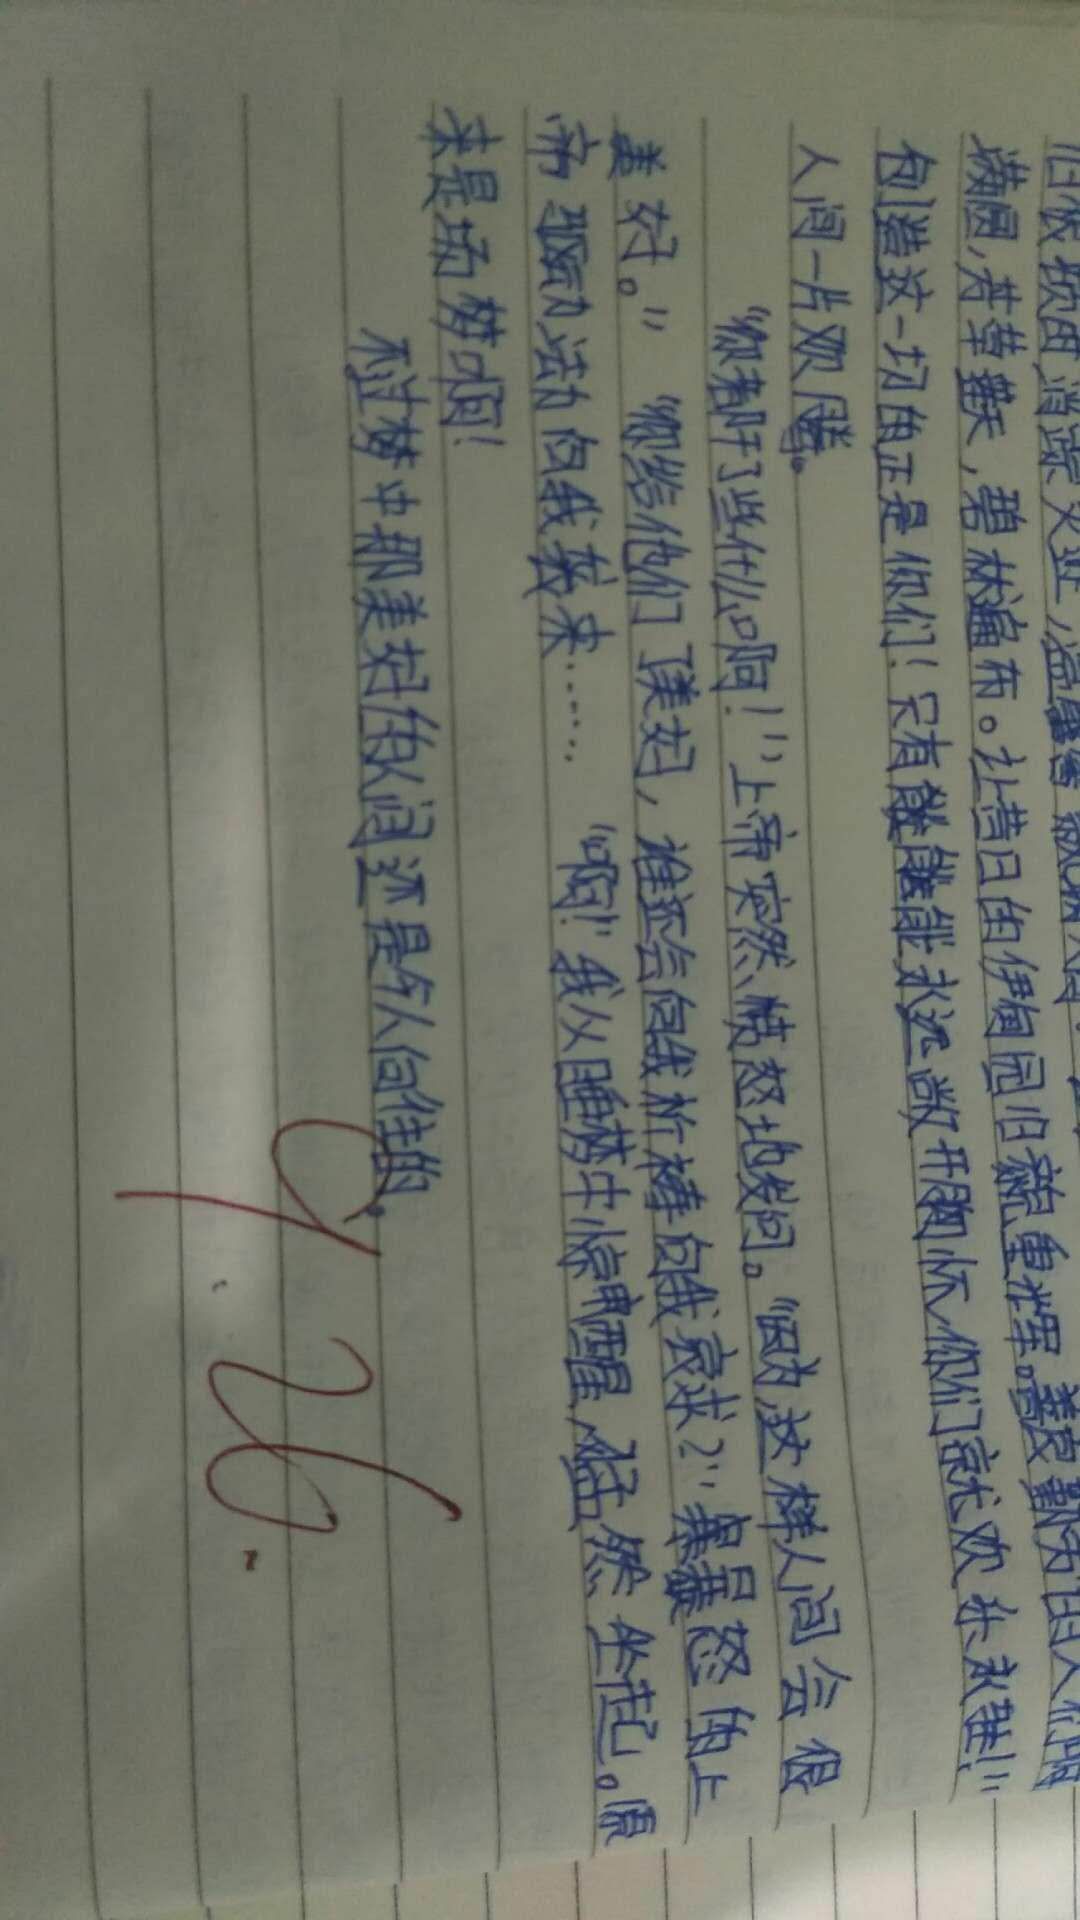 旧依烦由消
满圆,芳草
碧林遍布。让昔日的伊甸园旧貌重辉。善良勤劳的人们
创造这一切的正是你们!只有
能永远敞开胸怀,你们就欢乐永驻!"
人间一片欢腾。
"你都干了些什么啊!"上帝突然愤怒地发问。"因为这样人间会很
美好。" "你给他们美好,谁还会向我祈祷向我哀求?"暴怒的上
帝驱动法力向我袭来…… "啊!"我从睡梦中惊醒,猛然坐起。原
来是场梦啊!
不过梦中那美好的人间还是令人向往的。
9.26.